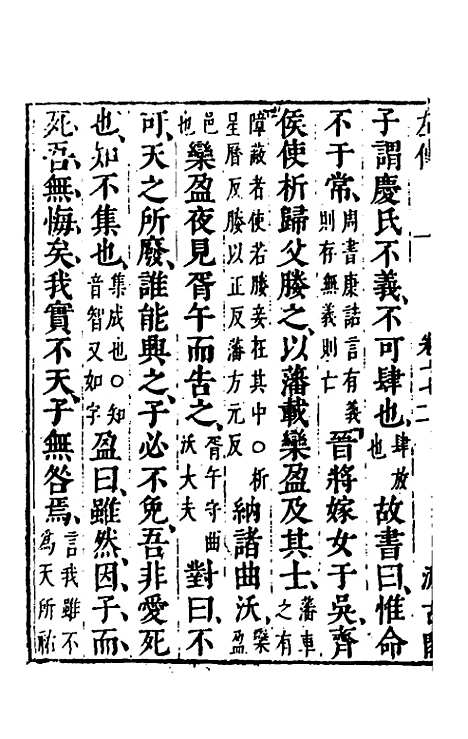 子謂慶氏不義、不可肆也、肆放也故書曰、惟命
不于常、周書康誥言有義則存無義則亡晉將嫁女于吳、齊
侯使析歸父媵之、以藩載欒盈及其士、藩車之有
障蔽者使若媵妾在其中○析星曆反媵以正反藩方元反納諸曲沃、欒盈
邑也欒盈夜見胥午而告之、胥午守曲沃大夫對曰、不
可、天之所廢、誰能興之、子必不免、吾非愛死
也、知不集也、集成也○知音智又如字盈曰、雖然、因子而
死、吾無悔矣、我實不天、子無咎焉、言我雖不爲天所祐